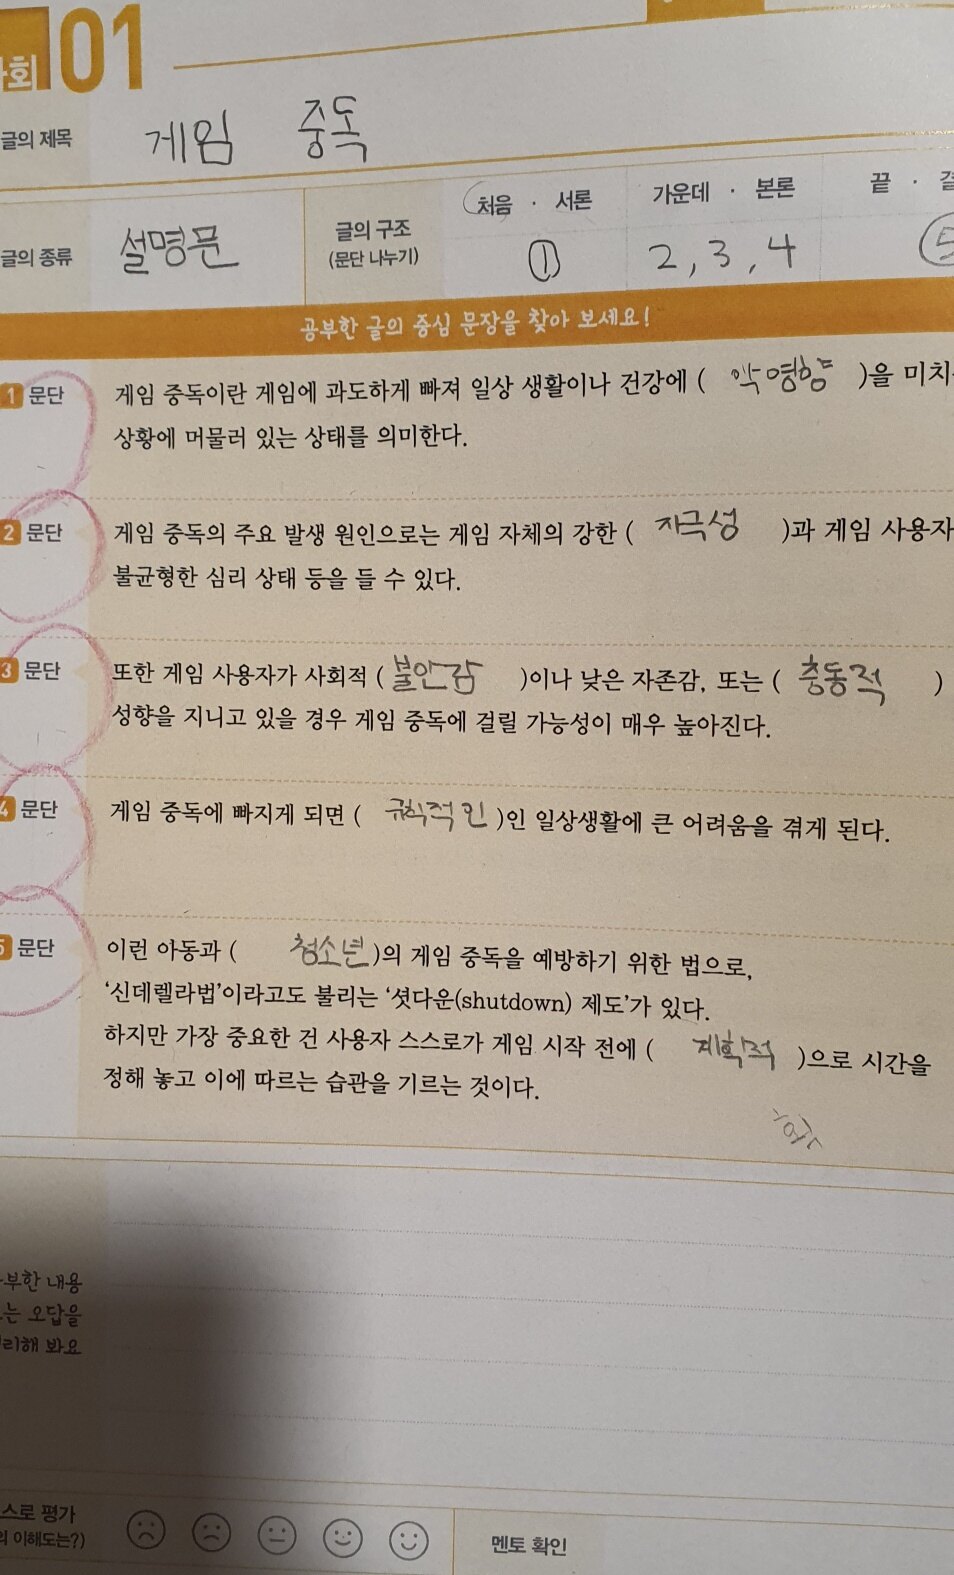 회 01
글의 제목 게임 중독
글의 종류 설명문 글의 구조 (문단 나누기) 처음 · 서론 가운데 · 본론 끝 ·
① 2, 3, 4 ⑤
공부한 글의 중심 문장을 찾아 보세요!
1 문단 게임 중독이란 게임에 과도하게 빠져 일상 생활이나 건강에 ( 악영향 )을 미치
상황에 머물러 있는 상태를 의미한다.
2 문단 게임 중독의 주요 발생 원인으로는 게임 자체의 강한 ( 자극성 )과 게임 사용자
불균형한 심리 상태 등을 들 수 있다.
3 문단 또한 게임 사용자가 사회적 ( 불안감 )이나 낮은 자존감, 또는 ( 충동적 )
성향을 지니고 있을 경우 게임 중독에 걸릴 가능성이 매우 높아진다.
4 문단 게임 중독에 빠지게 되면 ( 규칙적인 )인 일상생활에 큰 어려움을 겪게 된다.
5 문단 이런 아동과 ( 청소년 )의 게임 중독을 예방하기 위한 법으로,
‘신데렐라법’이라고도 불리는 ‘셧다운(shutdown) 제도’가 있다.
하지만 가장 중요한 건 사용자 스스로가 게임 시작 전에 ( 계획적 )으로 시간을
정해 놓고 이에 따르는 습관을 기르는 것이다.
부한 내용
는 오답을
리해 봐요
스로 평가
의 이해도는?)
멘토 확인